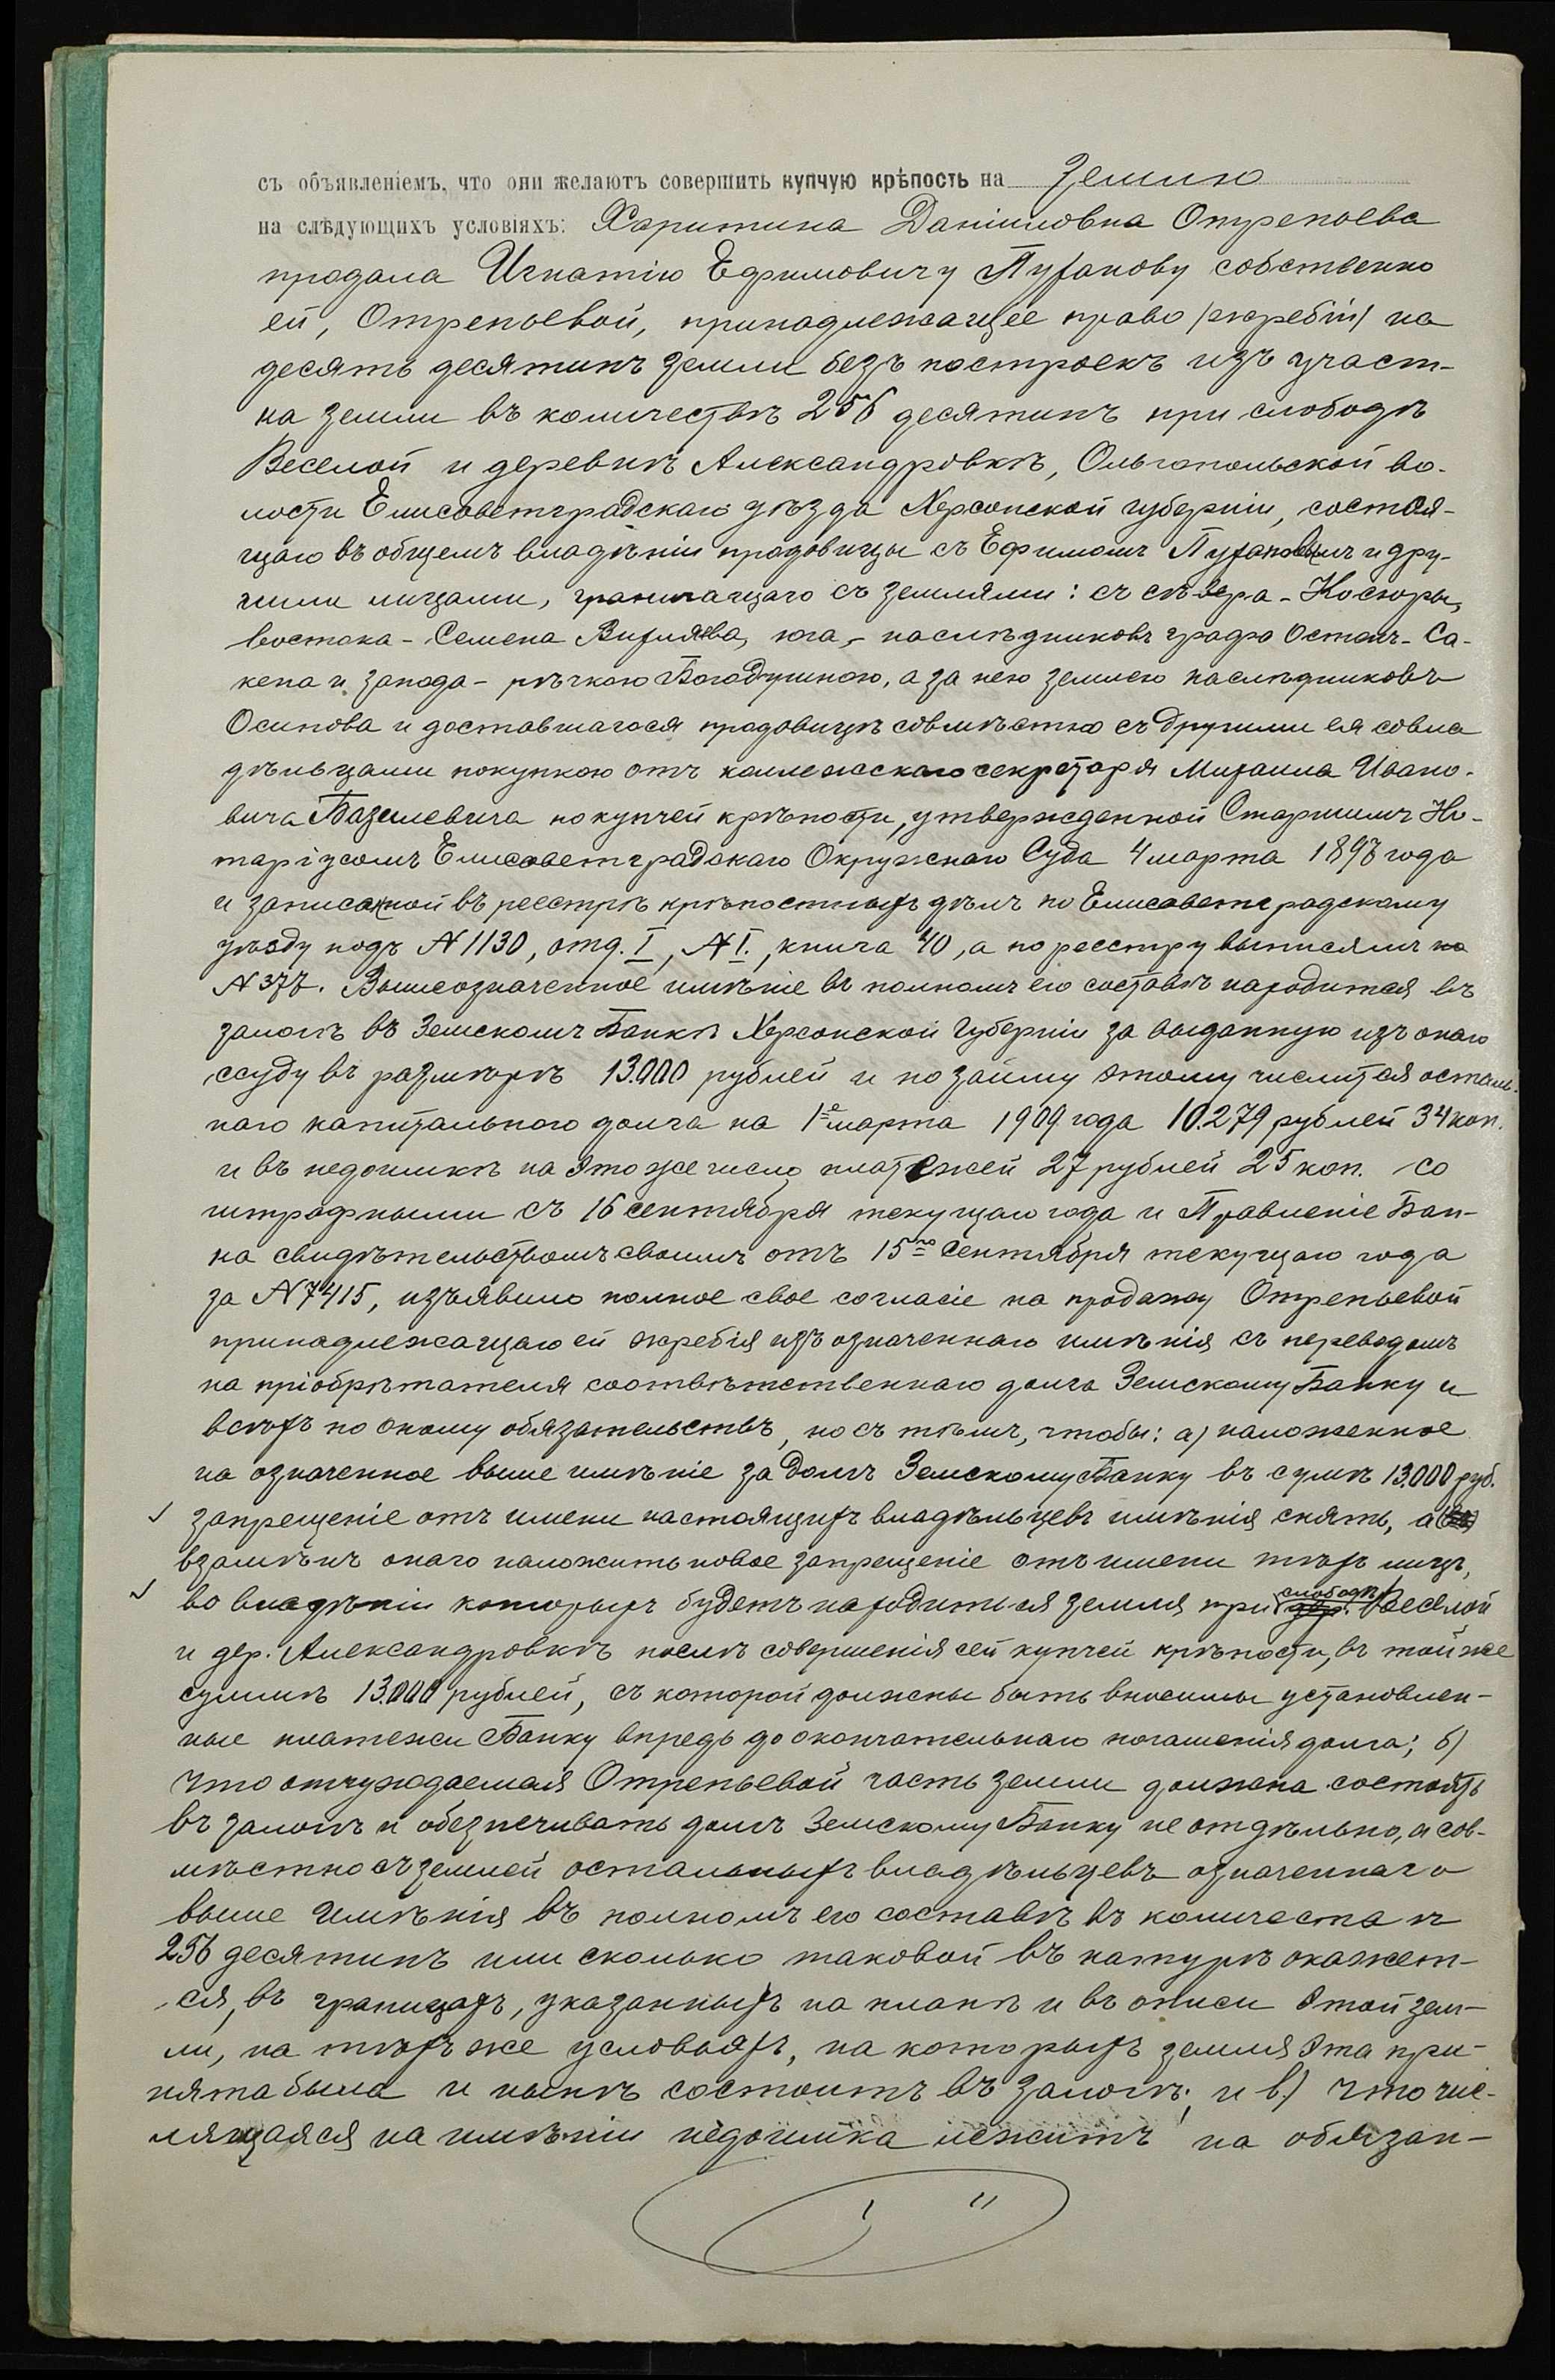 съ объявленіемъ, что они желаютъ совершить купчую крѣпость на землю
на слѣдующихъ условіяхъ: Харитина Даніиловна Отрепьева
продала Игнатію Ефимовичу Пуханову собственно
ей, Отрепьевой, принадлежащее право /жребій/ на
десять десятинъ земли безъ построекъ изъ участ-
ка земли въ количествѣ 256 десятинъ при слободѣ
Веселой и деревнѣ Александровкѣ, Ольгопольской во-
лости Елисаветградскаго уѣзда Херсонской губерніи, состоя-
щаго въ общемъ владѣніи продавицы съ Ефимомъ Пухановымъ и дру-
гими лицами, граничащаго съ землями: съ сѣвера - Косюры,
востока - Семена Вихляева, юга, - наслѣдниковъ графа Остенъ-Са-
кена и запада - рѣчкою Богодушною, а за нею землею наслѣдниковъ
Осипова и доставшагося продавицѣ совмѣстно съ другими ея совла
дѣльцами покупкою отъ коллежскаго секретаря Михаила Ивано-
вича Базилевича по купчей крѣпости, утвержденной Старшимъ Но-
таріусомъ Елисаветградскаго Окружнаго Суда 4 марта 1897 года
и записанной въ реестрѣ крѣпостныхъ дѣлъ по Елисаветградскому
уѣзду подъ № 1130, отд. I, № I., книга 40, а по реестру выписямъ на
№ 377. Вышеозначенное имѣніе въ полномъ его составѣ находится въ
залогѣ въ Земскомъ Банкѣ Херсонской Губерніи за выданную изъ онаго
ссуду въ размѣрѣ 13.000 рублей и по займу этому числится осталь-
наго капитальнаго долга на 1е марта 1909 года 10.279 рублей 34 коп.
и въ недоимкѣ на это же число платежей 27 рублей 25 коп. со
штрафными съ 16 сентября текущаго года и Правленіе Бан-
ка свидѣтельствомъ своимъ отъ 15го сентября текущаго года
за № 7415, изъявило полное свое согласіе на продажу Отрепьевой
принадлежащаго ей жребія изъ означеннаго имѣнія съ переводомъ
на пріобрѣтателя соотвѣтственнаго долга Земскому Банку и
всѣхъ по оному обязательствъ, но съ тѣмъ, чтобы: а) наложенное
на означенное выше имѣніе за долгъ Земскому Банку въ суммѣ 13.000 руб.
запрещеніе отъ имени настоящихъ владѣльцевъ имѣнія снять, а
взамѣнъ онаго наложить новое запрещеніе отъ имени тѣхъ лицъ,
во владѣніи которыхъ будетъ находиться земля при дер. слободѣ Веселой
и дер. Александровкѣ послѣ совершенія сей купчей крѣпости, въ той же
суммѣ 13.000 рублей, съ которой должны быть вносимы установлен-
ные платежи Банку впредь до окончательнаго погашенія долга; б)
что отчуждаемая Отрепьевой часть земли должна состоять
въ залогѣ и обезпечивать долгъ Земскому Банку не отдѣльно, а сов-
мѣстно съ землей остальныхъ владѣльцевъ означеннаго
выше имѣнія въ полномъ его составѣ въ количествѣ
256 десятинъ или сколько таковой въ натурѣ окажет-
ся, въ границахъ, указанныхъ на планѣ и въ описи этой зем-
ли, на тѣхъ же условіяхъ, на которыхъ земля эта при-
нята была и нынѣ состоитъ въ залогѣ; и в) что чис-
лящаяся на имѣніи недоимка лежитъ на обязан-